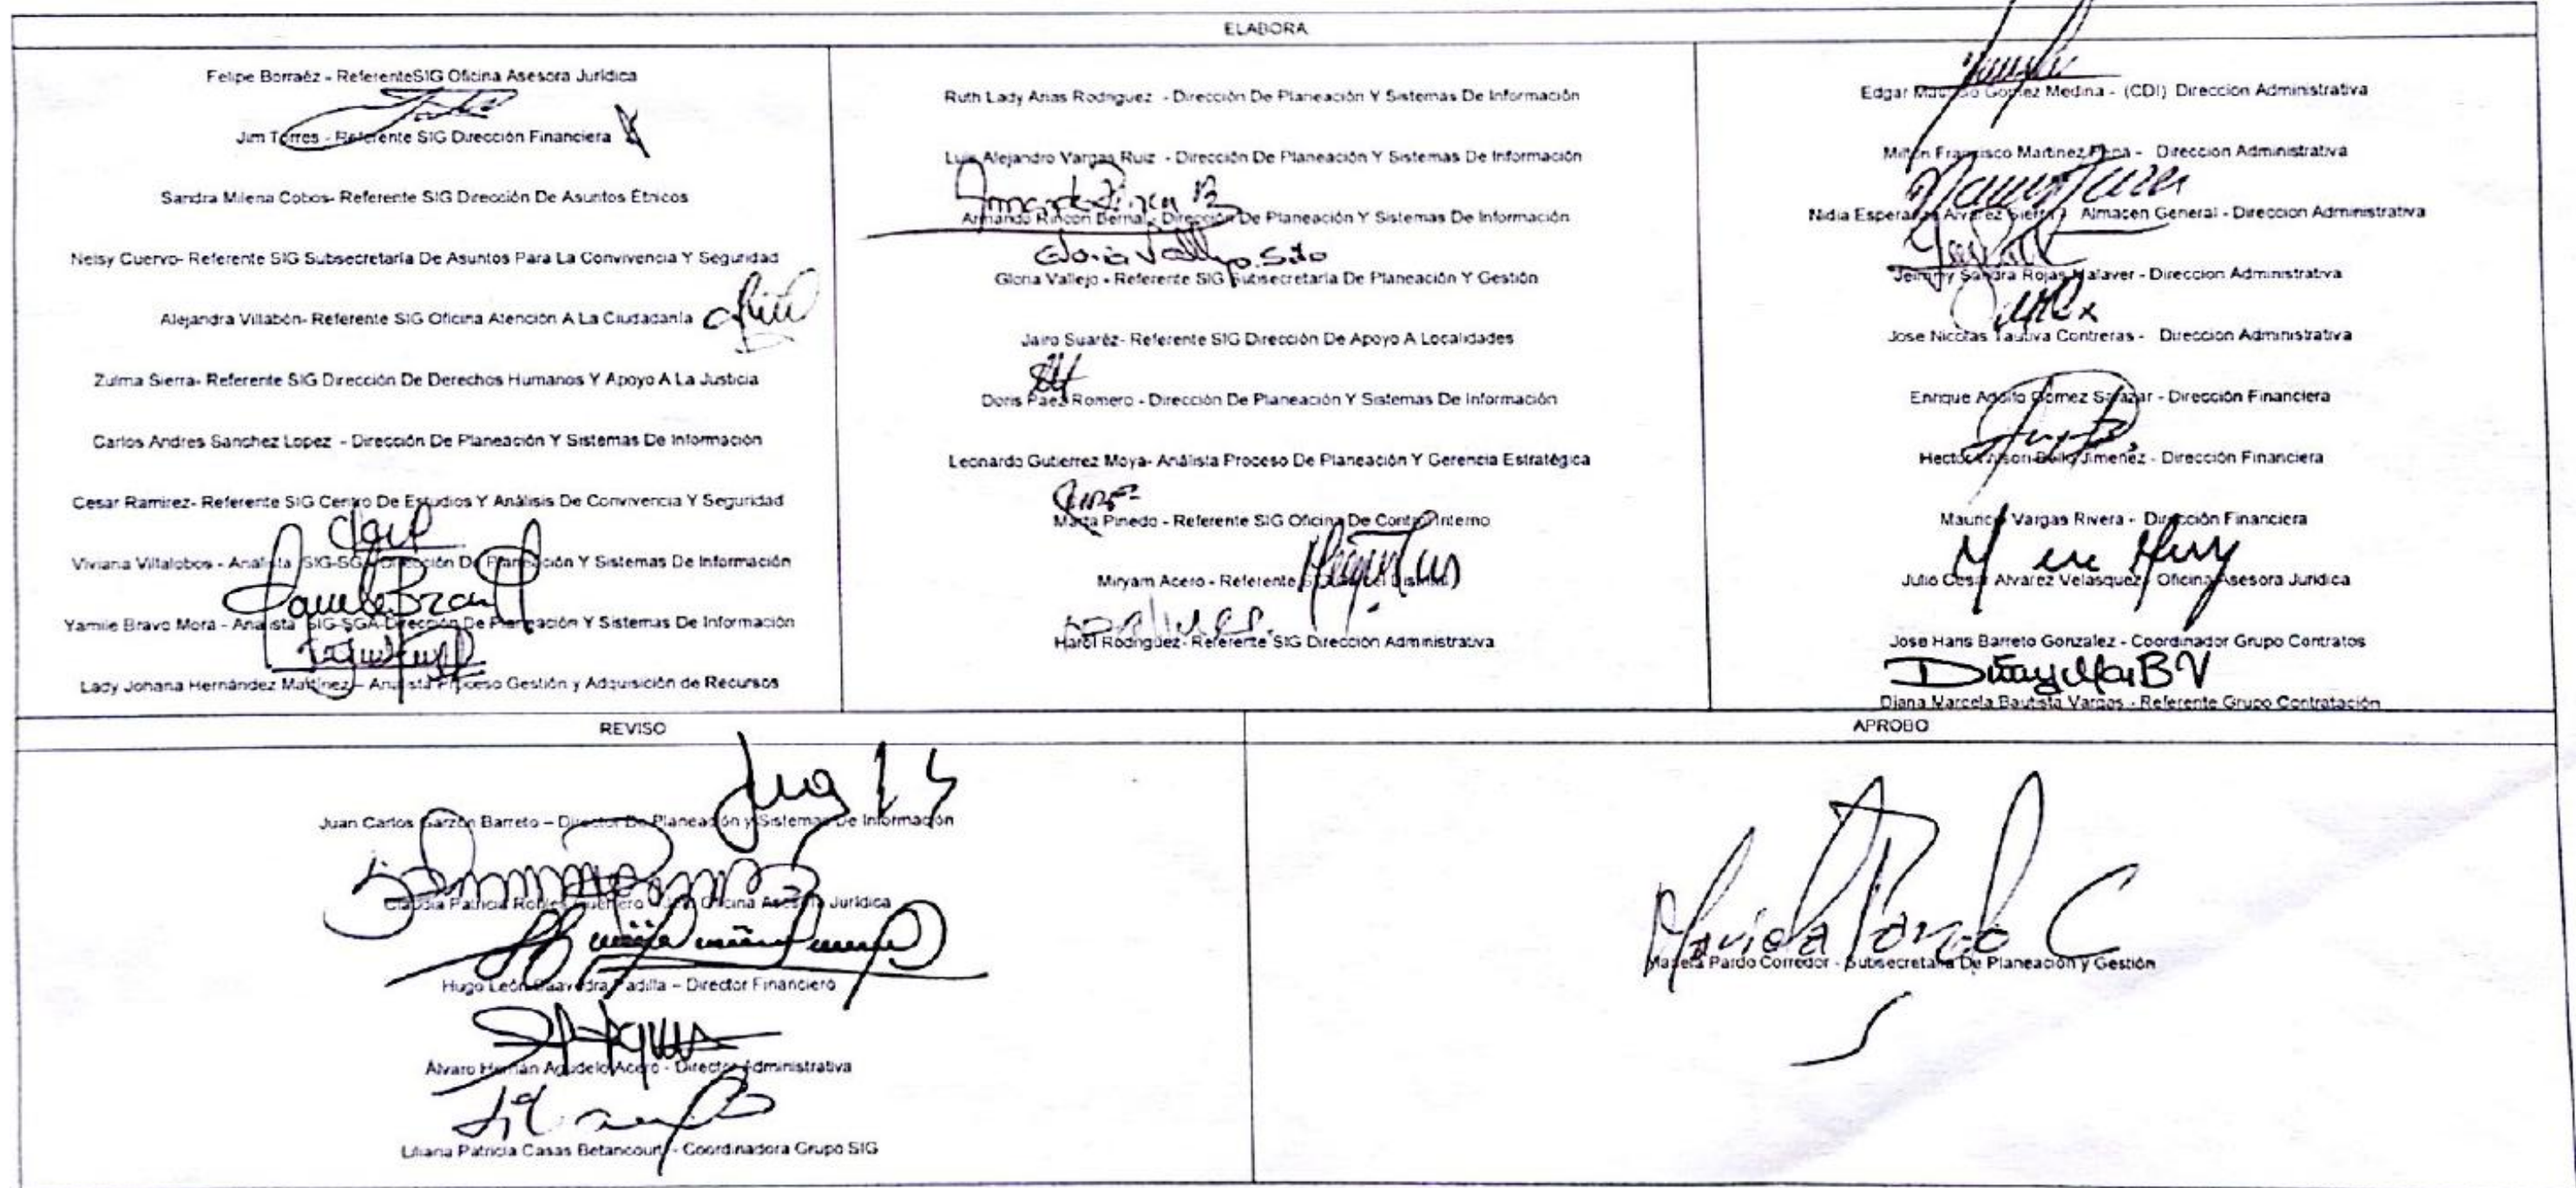 ELABORA
Felipe Borraéz - ReferenteSIG Oficina Asesora Jurídica
Jim Torres - Referente SIG Dirección Financiera
Sandra Milena Cobos- Referente SIG Dirección De Asuntos Étnicos
Nelsy Cuervo- Referente SIG Subsecretaría De Asuntos Para La Convivencia Y Seguridad
Alejandra Villabón- Referente SIG Oficina Atención A La Ciudadanía
Zulma Sierra- Referente SIG Dirección De Derechos Humanos Y Apoyo A La Justicia
Carlos Andres Sanchez Lopez - Dirección De Planeación Y Sistemas De Información
Cesar Ramirez- Referente SIG Centro De Estudios Y Análisis De Convivencia Y Seguridad
Viviana Villalobos - Analista SIG-SGA Dirección De Planeación Y Sistemas De Información
Yamile Bravo Mora - Analista SIG-SGA Dirección De Planeación Y Sistemas De Información
Lady Johana Hernández Martínez - Analista Proceso Gestión y Adquisición de Recursos
Ruth Lady Arias Rodriguez - Dirección De Planeación Y Sistemas De Información
Luis Alejandro Vargas Ruiz - Dirección De Planeación Y Sistemas De Información
Armando Rincón B
Armando Rincon Bernal - Dirección De Planeación Y Sistemas De Información
Gloria Vallejo Soto
Gloria Vallejo - Referente SIG Subsecretaría De Planeación Y Gestión
Jairo Suaréz- Referente SIG Dirección De Apoyo A Localidades
Doris Paez Romero - Dirección De Planeación Y Sistemas De Información
Leonardo Gutierrez Moya- Análista Proceso De Planeación Y Gerencia Estratégica
Marta Pinedo - Referente SIG Oficina De Control Interno
Miryam Acero - Referente
Harol Rodriguez- Referente SIG Dirección Administrativa
Edgar Mauricio Gomez Medina - (CDI) Direccion Administrativa
Milton Francisco Martinez - Direccion Administrativa
Nidia Esperanza Alvarez Sierra - Almacen General - Direccion Administrativa
Jeimmy Sandra Rojas Malaver - Direccion Administrativa
Jose Nicolas Tautiva Contreras - Direccion Administrativa
Enrique Adolfo Gomez Salazar - Dirección Financiera
Hector Wilson Jimenez - Dirección Financiera
Mauricio Vargas Rivera - Dirección Financiera
Julio Cesar Alvarez Velasquez - Oficina Asesora Juridica
Jose Hans Barreto Gonzalez - Coordinador Grupo Contratos
Diana Marcela Bautista Vargas - Referente Grupo Contratación
REVISO
Juan Carlos Garzón Barreto – Director De Planeación y Sistemas De Información
Claudia Patricia Robles Guerrero - Jefe Oficina Asesora Jurídica
Hugo León Saavedra Padilla – Director Financiero
Álvaro Hernán Agudelo Acero - Director Administrativa
Liliana Patricia Casas Betancourt - Coordinadora Grupo SIG
APROBO
Mariela Pardo C
Mariela Pardo Corredor - Subsecretaria De Planeación y Gestión